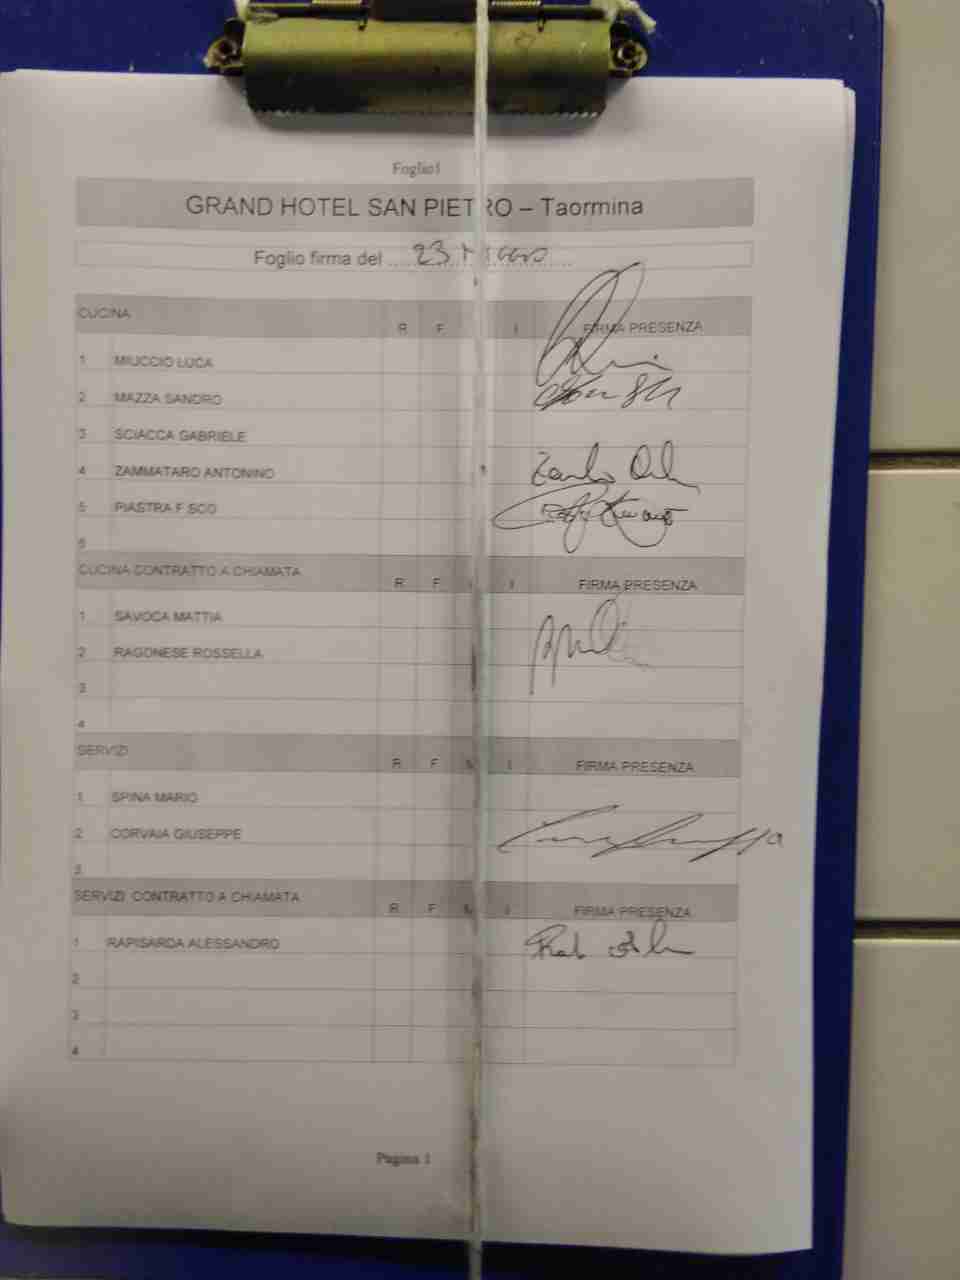 Foglio1
GRAND HOTEL SAN PIETRO – Taormina
Foglio firma del ....23 Maggio....
CUCINA R F I FIRMA PRESENZA
1 MIUCCIO LUCA
2 MAZZA SANDRO
3 SCIACCA GABRIELE
4 ZAMMATARO ANTONINO
5 PIASTRA F.SCO
6
CUCINA CONTRATTO A CHIAMATA R F I FIRMA PRESENZA
1 SAVOCA MATTIA
2 RAGONESE ROSSELLA
3
4
SERVIZI R F M I FIRMA PRESENZA
1 SPINA MARIO
2 CORVAIA GIUSEPPE
3
SERVIZI CONTRATTO A CHIAMATA R F M I FIRMA PRESENZA
1 RAPISARDA ALESSANDRO
2
3
4
Pagina 1